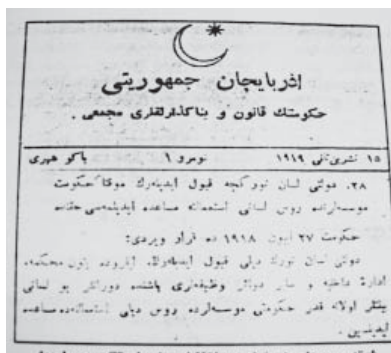 اذربایجان جمهوریتی
حکومتك قانون و بناگذارلقلری مجمعی .
۱۵ نشرین‌ثانی ۱۹۱۹ نومرو ۱ باکو شهری
۲۸. دولتی لسان تورکجه قبول ایدیله‌رك موقتا حکومت
موسسه‌لرنده روس لسانی استعمالنه مساعده ایدیلمه‌سی حقنده
حکومت ۲۷ ایون ۱۹۱۸ ده قرار ویردی:
دولتی لسان تورك دیلی قبول ایدیله‌رك، بتون محکمه،
اداره داخلیه و سایر دوائر وظیفه‌لری باشنده دورانلر بو لسانی
بیلنلر اولانه قدر حکومتی موسسه‌لرده روس دیلی استعمالنه‌ده مساعده
ایدیلسین .